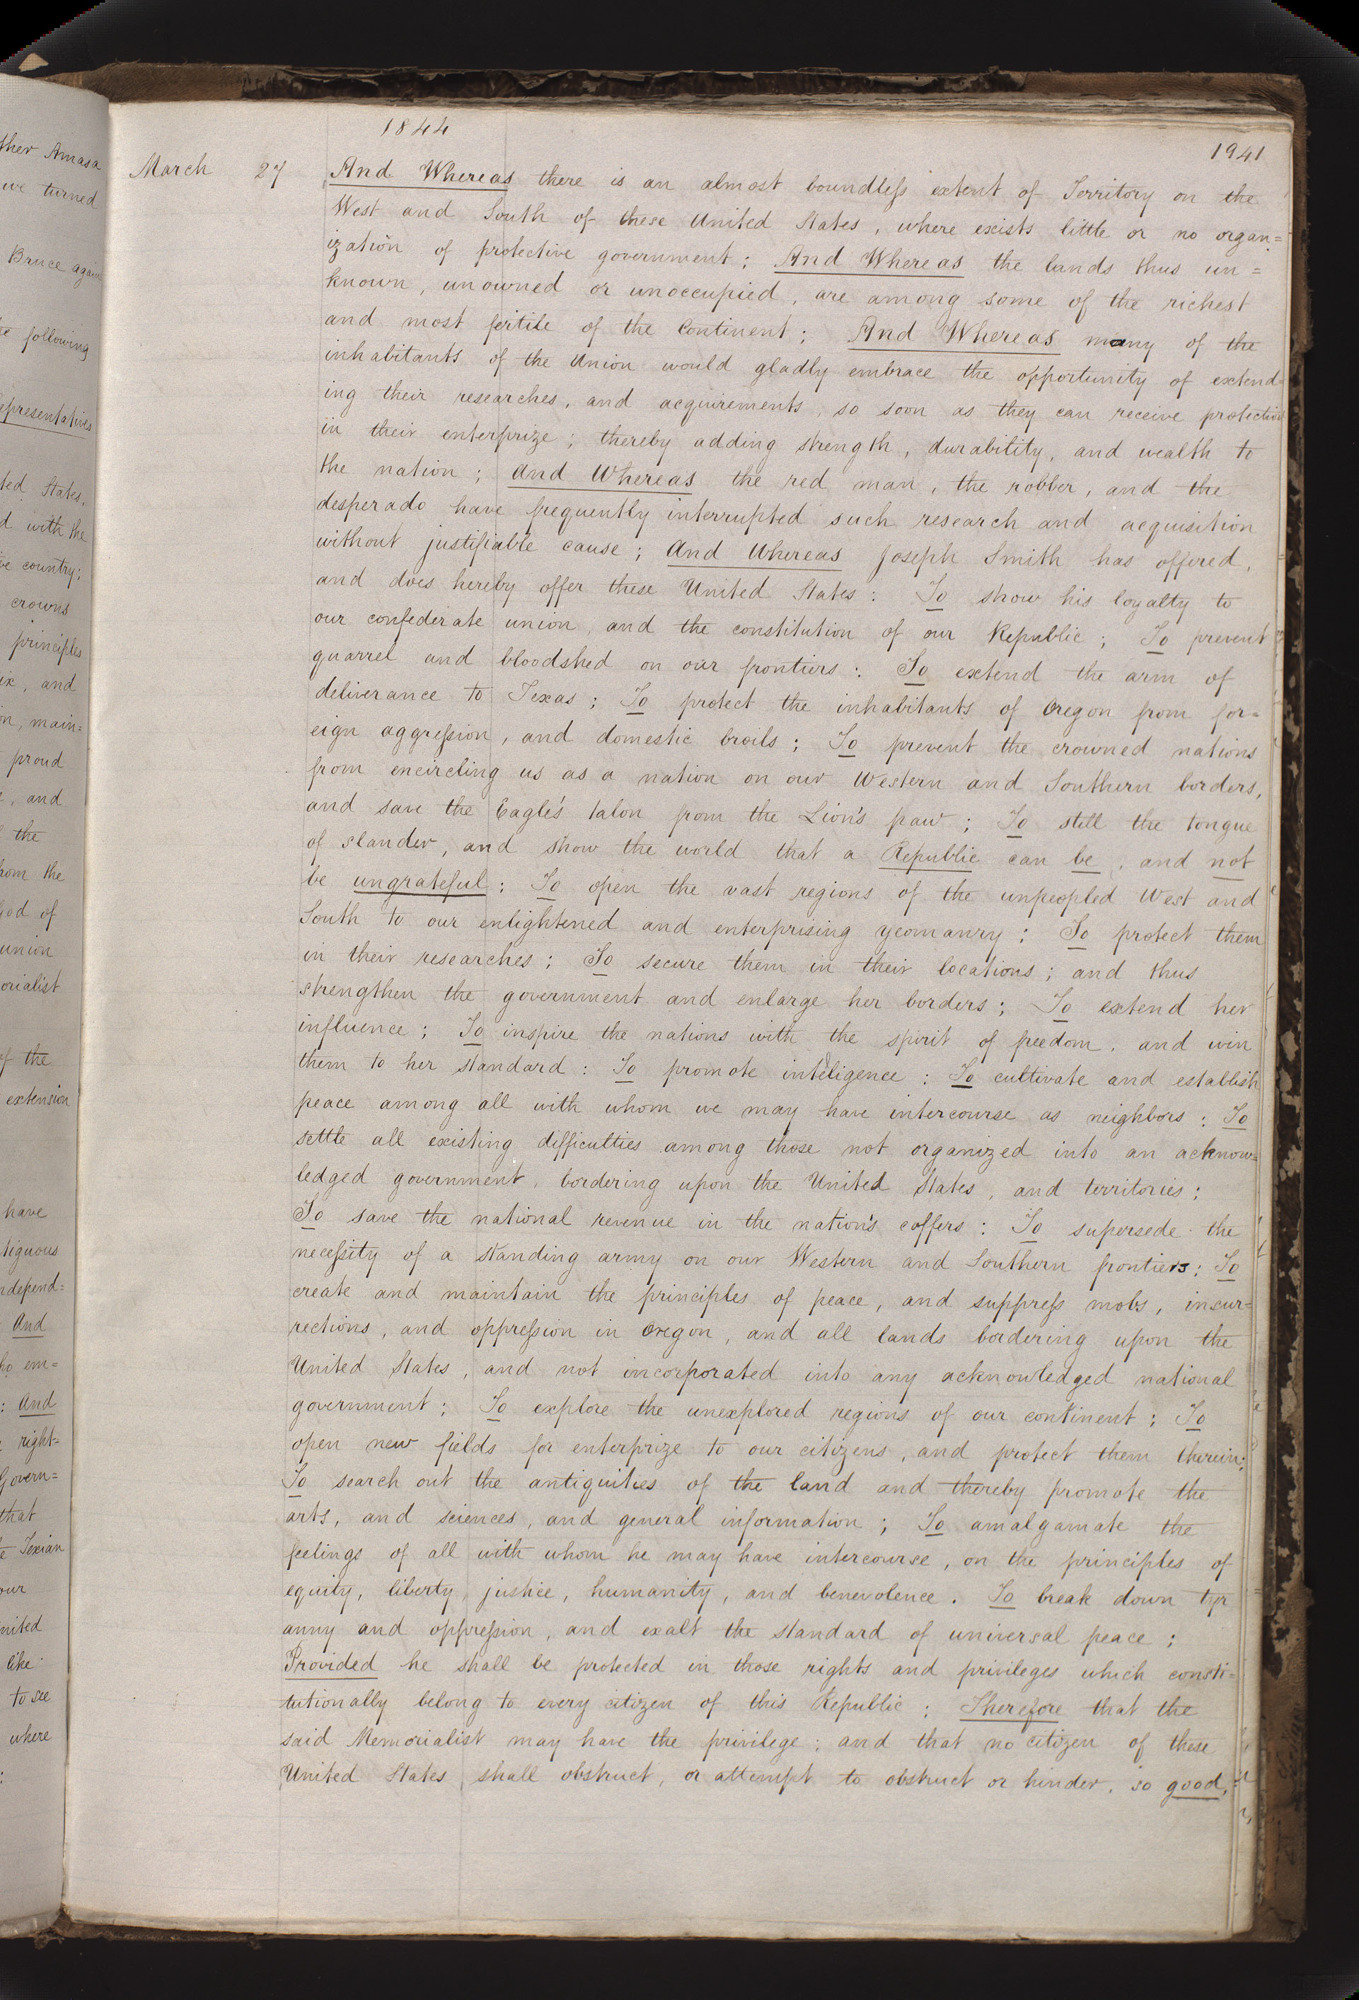 ther Amasa
we turned
Bruce again
he following
epresentatives
ted States.
d with the
ve country;
crowns
principles
ix, and
on, main=
proud
, and
the
from the
God of
union
orialist
of the
extension
have
tiguous
ndepend=
And
ho em=
: And
right=
Govern=
that
e Texian
our
nited
like
to see
where
1844
1941
March 27 And Whereas there is an almost boundless extent of Territory on the
West and South of these United States, where exists little or no organ=
ization of protective government; And Whereas the lands thus un=
known, unowned or unoccupied, are among some of the richest
and most fertile of the Continent; And Whereas many of the
inhabitants of the Union would gladly embrace the opportunity of extend=
ing their researches, and acquirements so soon as they can receive protection
in their enterprize; thereby adding strength, durability, and wealth to
the nation; And Whereas the red man, the robber, and the
desperado have frequently interrupted such research and acquisition
without justifiable cause; And Whereas Joseph Smith has offered,
and does hereby offer these United States: To show his loyalty to
our confederate union, and the constitution of our Republic; To prevent
quarrel and bloodshed on our frontiers: To extend the arm of
deliverance to Texas; To protect the inhabitants of Oregon from for=
eign aggression, and domestic broils; To prevent the crowned nations
from encircling us as a nation on our Western and Southern borders,
and save the Eagle's talon from the Lion's paw; To still the tongue
of slander, and show the world that a Republic can be, and not
be ungrateful; To open the vast regions of the unpeopled West and
South to our enlightened and enterprising yeomanry; To protect them
in their researches; To secure them in their locations; and thus
strengthen the government and enlarge her borders; To extend her
influence; To inspire the nations with the spirit of freedom, and win
them to her standard: To promote intelligence: To cultivate and establish
peace among all with whom we may have intercourse as neighbors: To
settle all existing difficulties among those not organized into an acknow=
ledged government, bordering upon the United States, and territories;
To save the national revenue in the nation's coffers: To supersede the
necessity of a standing army on our Western and Southern frontiers; To
create and maintain the principles of peace, and suppress mobs, insur=
rections, and oppression in Oregon, and all lands bordering upon the
United States, and not incorporated into any acknowledged national
government; To explore the unexplored regions of our continent; To
open new fields for enterprize to our citizens, and protect them therein;
To search out the antiquities of the land and thereby promote the
arts, and sciences, and general information; To amalgamate the
feelings of all with whom he may have intercourse, on the principles of
equity, liberty, justice, humanity, and benevolence. To break down tyr
anny and oppression, and exalt the standard of universal peace;
Provided he shall be protected in those rights and privileges which consti=
tutionally belong to every citizen of this Republic; Therefore that the
said Memorialist may have the privilege; and that no citizen of these
United States shall obstruct, or attempt to obstruct or hinder, so good,